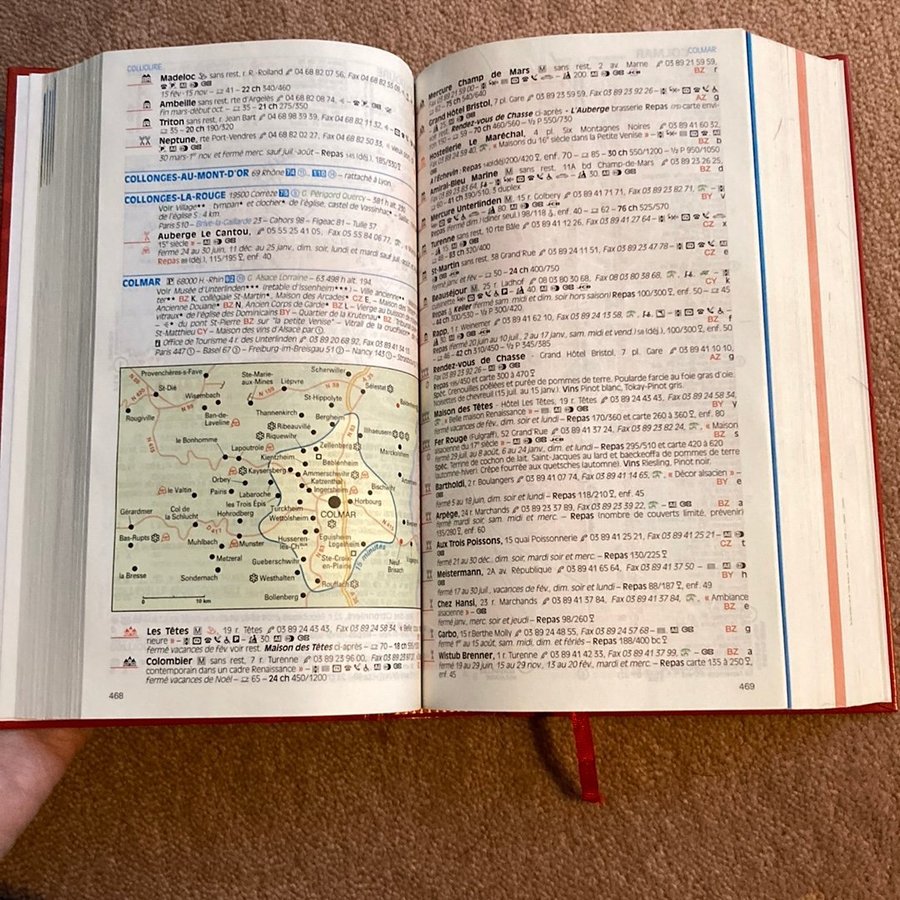 COLLIOURE
Madeloc sans rest, r. R.-Rolland 04 68 82 07 56, Fax 04 68 82
15 fév.-15 nov – 41 – 22 ch 340/460
Ambeille sans rest, rte d'Argelès 04 68 82 08 74,
fin mars-début oct. – 35 – 21 ch 275/350
Triton sans rest, r. Jean Bart 04 68 98 39 39, Fax 04 68 82 11 32,
35 – 20 ch 190/320
Neptune, rte Port-Vendres 04 68 82 02 27, Fax 04 68 82 50 33,
30 mars-1er nov. et fermé merc. sauf juil.-août – Repas 145 (déj.), 185/350
COLLONGES-AU-MONT-D'OR 69 Rhône 74 110 – rattaché à Lyon.
COLLONGES-LA-ROUGE 19500 Corrèze 75 G. Périgord Quercy – 381 h alt.
Voir Village** : tympan* et clocher* de l'église, castel de Vassinhac* – Saillac
de l'église S : 4 km.
Paris 510 – Brive-la-Gaillarde 23 – Cahors 98 – Figeac 81 – Tulle 37
Auberge Le Cantou, 05 55 25 41 05, Fax 05 55 84 06 77,
15e siècle » –
fermé 24 au 30 juin, 11 déc. au 25 janv., dim. soir, lundi et mardi sauf juil.
Repas (déj.), 115/195, enf. 40
COLMAR P 68000 H.-Rhin G. Alsace Lorraine – 63 498 h alt. 194
Voir Musée d'Unterlinden*** (retable d'Issenheim***) – Ville ancienne**
BZ K, collégiale St-Martin*, Maison des Arcades* CZ E – Maison
Ancienne Douane* BZ N, Ancien Corps de Garde* BZ L – Vierge au buisson
vitraux* de l'église des Dominicains BY – Quartier de la Krutenau* BZ
du pont St-Pierre BZ sur "la petite Venise" – Vitrail de la crucifixion
St-Matthieu CY – Maison des vins d'Alsace par
Office de Tourisme 4 r. des Unterlinden 03 89 20 68 92, Fax 03 89 41
Paris 447 – Basel 67 – Freiburg-im-Breisgau 51 – Nancy 143
Provenchères-s-Fave
Ste-Marie-aux-Mines
Scherwiller
St-Dié
Lièpvre
Sélestat
Wisembach
St-Hippolyte
N 59
N 415
Rougiville
Ban-de-Laveline
Thannenkirch
Bergheim
Ribeauvillé
Illhaeusern
le Bonhomme
Riquewihr
Zellenberg
Marckolsheim
Lapoutroie
Kientzheim
Beblenheim
Kaysersberg
Ammerschwihr
Orbey
Katzenthal
Ingersheim
Bischwihr
le Valtin
Pains
Labaroche
Horbourg
les Trois Épis
Gérardmer
Col de la Schlucht
Hohrodberg
Turckheim
COLMAR
Wettolsheim
Bas-Rupts
D 417
Munster
Muhlbach
Husseren-les-Chx
Eguisheim
Logelheim
Metzeral
Gueberschwihr
Ste-Croix-en-Plaine
Neuf-Brisach
la Bresse
Sondernach
Westhalten
Rouffach
Bollenberg
15 minutes
10 km
Les Têtes M, 19 r. Têtes 03 89 24 43 43, Fax 03 89 24 58 34,
fermé vacances de fév. voir rest. Maison des Têtes ci-après – 70 – 18 ch
Colombier M sans rest, 7 r. Turenne 03 89 23 96 00, Fax 03 89
contemporain dans un cadre Renaissance » –
fermé vacances de Noël – 65 – 24 ch 450/1200
468
COLMAR
Mercure Champ de Mars M sans rest, 2 av. Marne 03 89 21 59 59,
Fax 03 89 21 59 00 – 200 BZ r
62 – 75 ch 540/640
Grand Hôtel Bristol, 7 pl. Gare 03 89 23 59 59, Fax 03 89 23 92 26 –
rest. Rendez-vous de Chasse ci-après - L'Auberge brasserie Repas carte
59 – 70 ch 460/560 – ½ P 550/730
Hostellerie Le Maréchal, 4 pl. Six Montagnes Noires 03 89 41 60 32,
Fax 03 89 24 59 40, « Maisons du 16e siècle dans la Petite Venise » – BZ b
à l'Échevin : Repas 140(déj)/200/420, enf. 70 – 85 – 30 ch 550/1200 – ½ P 950/1050
Amiral-Bleu Marine M sans rest, 11A bd Champ-de-Mars 03 89 23 26 25,
Fax 03 89 23 83 64, – 30 BZ d
60 – 41 ch 390/510, 3 duplex
Mercure Unterlinden M, 15 r. Golbery 03 89 41 71 71, Fax 03 89 23 82 71, BY v
Repas (fermé dim.) (dîner seul.) 98/118, enf. 40 – 62 – 76 ch 525/570
Turenne sans rest, 10 rte Bâle 03 89 41 12 26, Fax 03 89 41 27 64 – CZ x
48 – 83 ch 320/400
St-Martin sans rest, 38 Grand Rue 03 89 24 11 51, Fax 03 89 23 47 78 – CZ e
fermé janv. et fév. – 50 – 24 ch 400/750
Beauséjour M, 25 r. Ladhof 03 89 80 30 68, Fax 08 03 80 38 68, CY k
Repas (fermé sam. midi et dim. soir hors saison) Repas 100/300, enf. 50 – 45
44 ch 300/530 – ½ P 300/420
Rapp, 1 r. Weinemer 03 89 41 62 10, Fax 03 89 24 13 58, BZ f
Repas (fermé 20 juin au 10 juil., 2 au 17 janv., sam. midi et vend.) 58 (déj.), 100/300, enf. 50
46 – 42 ch 310/450 – ½ P 345/385
Rendez-vous de Chasse - Grand Hôtel Bristol, 7 pl. Gare 03 89 41 10 10,
Fax 03 89 23 92 26 – AZ g
Repas 195/450 et carte 300 à 470
Spéc. Grenouilles poêlées et purée de pommes de terre. Poularde farcie au foie gras d'oie.
Noisettes de chevreuil (15 juil. au 15 janv.). Vins Pinot blanc, Tokay-Pinot gris.
Maison des Têtes - Hôtel Les Têtes, 19 r. Têtes 03 89 24 43 43, Fax 03 89 24 58 34,
« Belle maison Renaissance » – BY v
fermé vacances de fév., dim. soir et lundi – Repas 170/360 et carte 260 à 360, enf. 80
Fer Rouge (Fulgraff), 52 Grand'Rue 03 89 41 37 24, Fax 03 89 23 82 24, « Maison
alsacienne du 17e siècle » – BZ s
fermé 29 juil. au 8 août, 6 au 24 janv., dim. soir et lundi – Repas 295/510 et carte 420 à 620
Spéc. Terrine de cochon de lait. Saint-Jacques au lard et baeckeoffa de pommes de terre
(automne-hiver). Crêpe fourrée aux quetsches (automne). Vins Riesling, Pinot noir.
Bartholdi, 2 r. Boulangers 03 89 41 07 74, Fax 03 89 41 14 65, « Décor alsacien » –
BY e
fermé 5 au 18 juin, dim. soir et lundi – Repas 118/210, enf. 45
Arpège, 24 r. Marchands 03 89 23 37 89, Fax 03 89 23 39 22, BZ a
fermé mardi soir, sam. midi et merc. – Repas (nombre de couverts limité, prévenir)
135/280, enf. 60
Aux Trois Poissons, 15 quai Poissonnerie 03 89 41 25 21, Fax 03 89 41 25 21 –
CZ t
fermé 21 au 30 déc., dim. soir, mardi soir et merc. – Repas 130/225
Meistermann, 2A av. République 03 89 41 65 64, Fax 03 89 41 37 50 –
BY h
fermé 17 au 30 juil., vacances de fév., dim. soir et lundi – Repas 88/187, enf. 49
Chez Hansi, 23 r. Marchands 03 89 41 37 84, Fax 03 89 41 37 84, « Ambiance
alsacienne » – BZ e
fermé janv., merc. soir et jeudi – Repas 98/260
Garbo, 15 r. Berthe Molly 03 89 24 48 55, Fax 03 89 24 57 68 – BZ g
fermé 1er au 15 août, sam. midi, dim. et fériés – Repas 188/400 bc
Wistub Brenner, 1 r. Turenne 03 89 41 42 33, Fax 03 89 41 37 99, BZ a
fermé 19 au 29 juin, 15 au 29 nov., 13 au 20 fév., mardi et merc. – Repas carte 135 à 250,
enf. 45
469